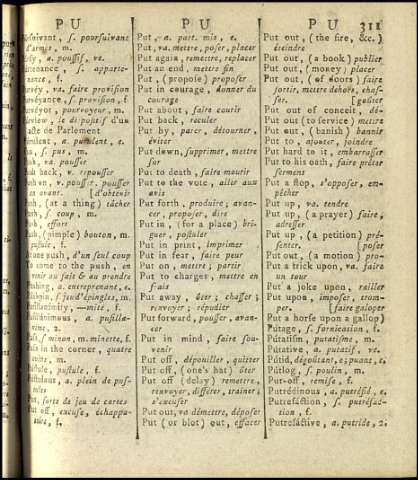 PU
PU
PU
311
poursuivant
d'armes, m.
a. pouffif, ve.
f. apparte-
nance, f.
va. faire provision
f. provision, f
pourvoyeur, m.
acte de Parlement
a. purulent, e.
f. pus, m.
va. pousser
back, v. repousser
v. pousser
en avant. [d'obtenir
(at a thing) tâcher
f. coup, m.
effort
(pimple) bouton, m.
pustule, f.
d'un seul coup
to come to the push, en
venir au fait & au prendre
a. entreprenant, e.
f. jeu d'épingles, m.
—ité, f.
a. pusilla-
nime, 2.
f. minon, m. minette, f.
in the corner, quatre
coins, m.
pustule, f.
a. plein de pus-
tules
sorte de jeu de cartes
off, excuse, échappa-
toire, f.
Put, a. part. mis, e.
Put, va. mettre, poser, placer
Put again, remettre, replacer
Put an end, mettre fin
Put, (propose) proposer
Put in courage, donner du
courage
Put about, faire courir
Put back, reculer
Put by, parer, détourner,
éviter
Put down, supprimer, mettre
sur
Put to death, faire mourir
Put to the vote, aller aux
avis
Put forth, produire; avan-
cer, proposer, dire
Put in, (for a place) bri-
guer; postuler
Put in print, imprimer
Put in fear, faire peur
Put on, mettre; partir
Put to charges, mettre en
frais
Put away, ôter; chasser;
renvoyer; répudier
Put forward, pousser, avan-
cer
Put in mind, faire sou-
venir
Put off, dépouiller, quitter
Put off (one's hat) ôter
Put off (delay) remettre,
renvoyer, différer, traîner;
s'excuser
Put out, va démettre, déposer
Put (or blot) out, effacer
Put out, (the fire, &c.)
éteindre
Put out, (a book) publier
Put out, (money) placer
Put out, (of doors) faire
sortir, mettre dehors, chas-
ser. [geater
Put out of conceit, dé-
Put out (to service) mettre
Put out, (banish) bannir
Put to, ajouter, joindre
Put hard to it, embarrasser
Put to his oath, faire prêter
serment
Put a stop, s'opposer, em-
pêcher
Put up, va. tendre
Put up, (a prayer) faire,
adresser
Put up, (a petition) pré-
senter, [poser
Put out, (a motion) pro-
Put a trick upon, va. faire
un tour
Put a joke upon, railler
Put upon, imposer, trom-
per, [faire galoper
Put a horse upon a gallop)
Pútage, f. fornication, f.
Pútatism, putatisme, m.
Pútative, a. putatif, ve.
Pútid, dégoûtant, e; puant, e,
Pútlog, f. poulin, m.
Put-off, remise, f.
Putrédinous, a. putréfié, e.
Putrefáction, f. putréfac-
tion, f.
Putrefáctive, a. putride, 2.